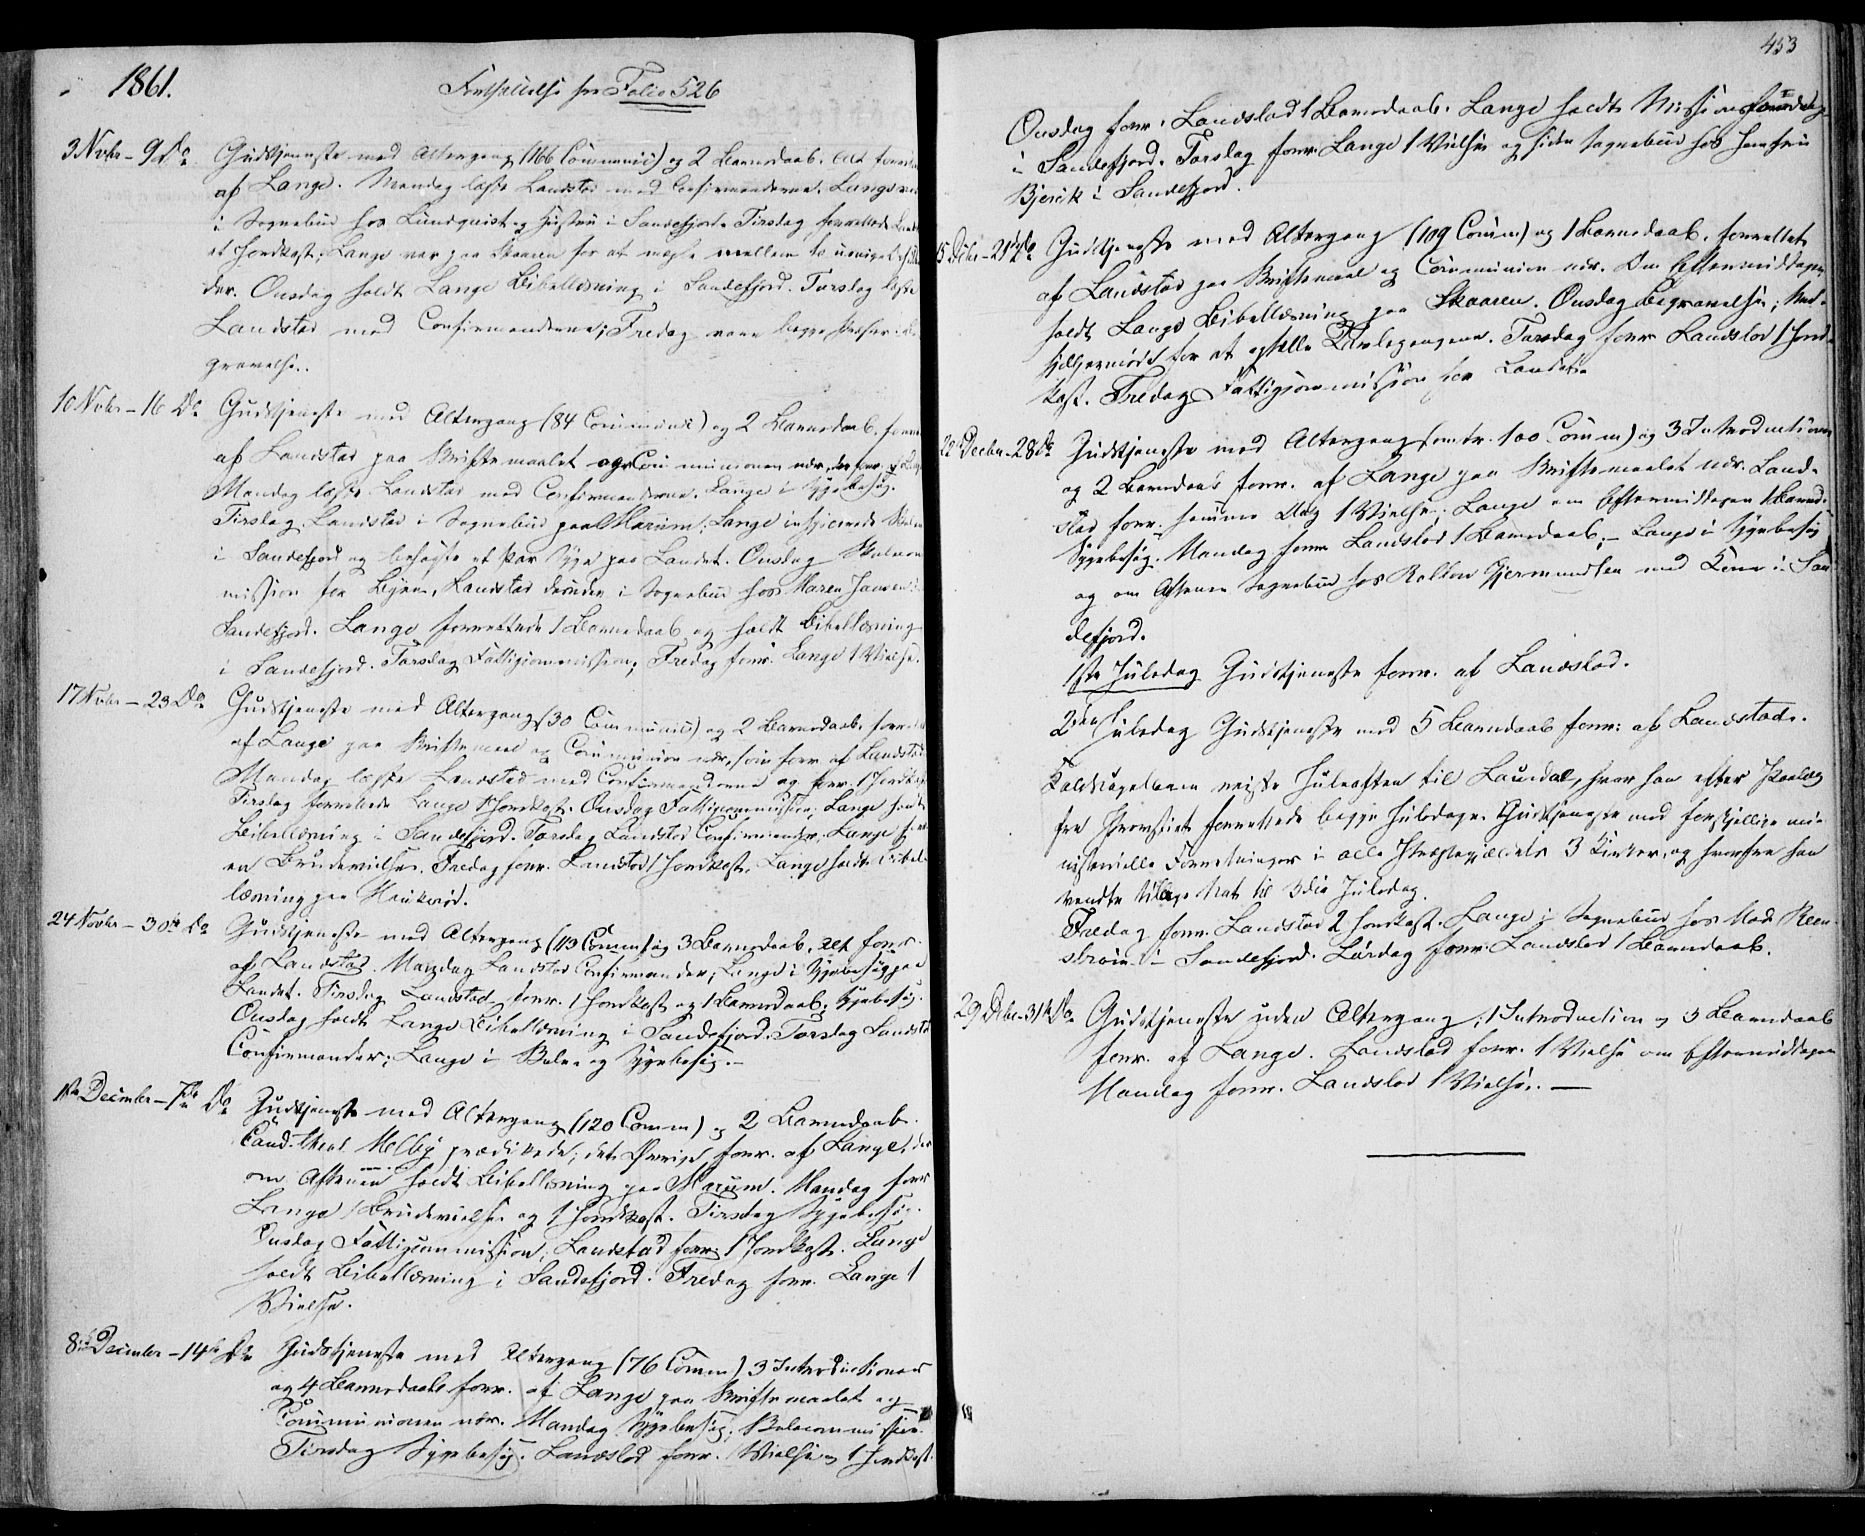 1861. Fortsættelse fra Folio 526
3 Novbr – 9 Do. Gudstjeneste med Altergang (166 Communic) og 2 Barnedaab. Alt forrettet
af Lange. Mandag læste Landstad med Confirmanderne. Lange var
i Sognebud hos Lundquist og Hustru i Sandefjord. Tirsdag forrettede
et Jordkast; Lange var paa Skaaren for at mægle mellem to uenige
der. Onsdag holdt Lange Bibellæsning i Sandefjord. Torsdag læste
Landstad med Confirmanderne; Fredag vare begge Præster
gravelse.
10 Novbr – 16 Do Gudstjeneste med Altergang (84 Communic) og 2 Barnedaab. forr.
af Landstad paa Skriftemaalet og Communionen nær, der forr. af Lange
Mandag læste Landstad med Confirmanderne. Lange i Sygebesøg.
Tirsdag. Landstad i Sognebud paa Marum; Lange
i Sandefjord og besøgte et Par Syge paa Landet. Onsdag Skolecom
mission paa Byen, Landstad desuden i Sognebud hos Maren Hansen i
Sandefjord. Lange forrettede 1 Barnedaab og holdt Bibellæsning
i Sandefjord. Torsdag Fattigcommission; Fredag forr. Lange 1 Vielse.
17 Novbr – 23 Do Gudstjeneste med Altergang (30 Communic) og 2 Barnedaab. forrettet
af Lange paa Skriftemaal og Communion nær, som forr. af Landstad
Mandag læste Landstad med Confirmanderne og forr. 1 Jordkast
Tirsdag forrettede Lange 1 Jordkast. Onsdag Fattigcommission; Lange holdt
Bibellæsning i Sandefjord. Torsdag Landstad Confirmander. Lange forr.
en Brudevielse. Fredag forr. Landstad 1 Jordkast, Lange holdt Bibel
læsning paa
24 Novbr – 30te Do Gudstjeneste med Altergang (113 Comm) og 3 Barnedaab. Alt forr.
af Landstad. Mandag Landstad Confirmander; Lange i Sygebesøg paa
Landet. Tirsdag Landstad forr. 1 Jordkast og 1 Barnedaab; Sygebesøg.
Onsdag holdt Lange Bibellæsning i Sandefjord. Torsdag Landstad
Confirmander; Lange i Skole og Sygebesøg. –
1ste December – 7de Do Gudstjeneste med Altergang (120 Comm) og 2 Barnedaab.
Cand. theol. Melby prædikede; det Øvrige forr. af Lange, der
om Aftenen holdt Bibellæsning paa Marum. Mandag forr
Lange 1 Brudevielse og 1 Jordkast. Tirsdag Sygebesøg.
Onsdag Fattigcommission; Landstad forr. 1 Jordkast. Lange
holdt Bibellæsning i Sandefjord. Fredag forr. Lange 1
Vielse.
8de December – 14de Do Gudstjeneste med Altergang (76 Comm) 3 Introductioner
og 4 Barnedaab forr. af Lange paa Skriftemaalet og
Communionen nær. Mandag Sygebesøg; Skolecommission.
Tirsdag Sygebesøg. Landstad forr. 1 Vielse og 1 Jordkast.
453
Onsdag forr. Landstad 1 Barnedaab. Lange holdt Missions
i Sandefjord. Torsdag forr. Lange 1 Vielse og siden Sognebud hos Jomfru
Bjerck i Sandefjord.
15 Decbr – 21de Do Gudstjeneste med Altergang (109 Comm) og 1 Barnedaab. forrettet
af Landstad paa Skriftemaal og Communion nær. Om Eftermiddagen
holdt Lange Bibellæsning paa Skaaren. Onsdag Begravelse; Med-
hjælpermøde for at optælle Torsdag forr Landstad 1 Jord-
kast. Fredag Fattigcommission for Landet.
22 Decbr – 28 Do Gudstjeneste med Altergang (omtr. 100 Comm) og 3 Introductioner
og 2 Barnedaab forr. af Lange paa Skriftemaalet nær. Land-
stad forr. samme Dag 1 Vielse. Lange om Eftermiddagen 1 Barned.
Sygebesøg. Mandag forr Landstad 1 Barnedaab; – Lange i Sygebesøg
og om Aftenen Sognebud hos Gjermundsen med Kone i San
defjord.
1ste Juledag Gudstjeneste forr. af Landstad.
2den Juledag Gudstjeneste med 5 Barnedaab forr: af Landstad.
Kaldscapellanen reiste Juleaften til Laurdal, hvor han efter Paalæg
fra Provstiet forrettede begge Juledage Gudstjeneste med forskjellige mi-
nisterielle Forretninger i alle Præstegjældets 3 Kirker, og hvorfra han
vendte tilbage Nat til 3die Juledag.
Fredag forr. Landstad 2 Jordkast. Lange i Sognebud hos Mad. Reen-
i Sandefjord. Lørdag forr: Landstad 1 Barnedaab.
29 Decbr – 31te Do Gudstjeneste uden Altergang; 1 Introduction og 3 Barnedaab
forr. af Lange. Landstad forr. 1 Vielse om Eftermiddagen
Mandag forr. Landstad 1 Vielse. —